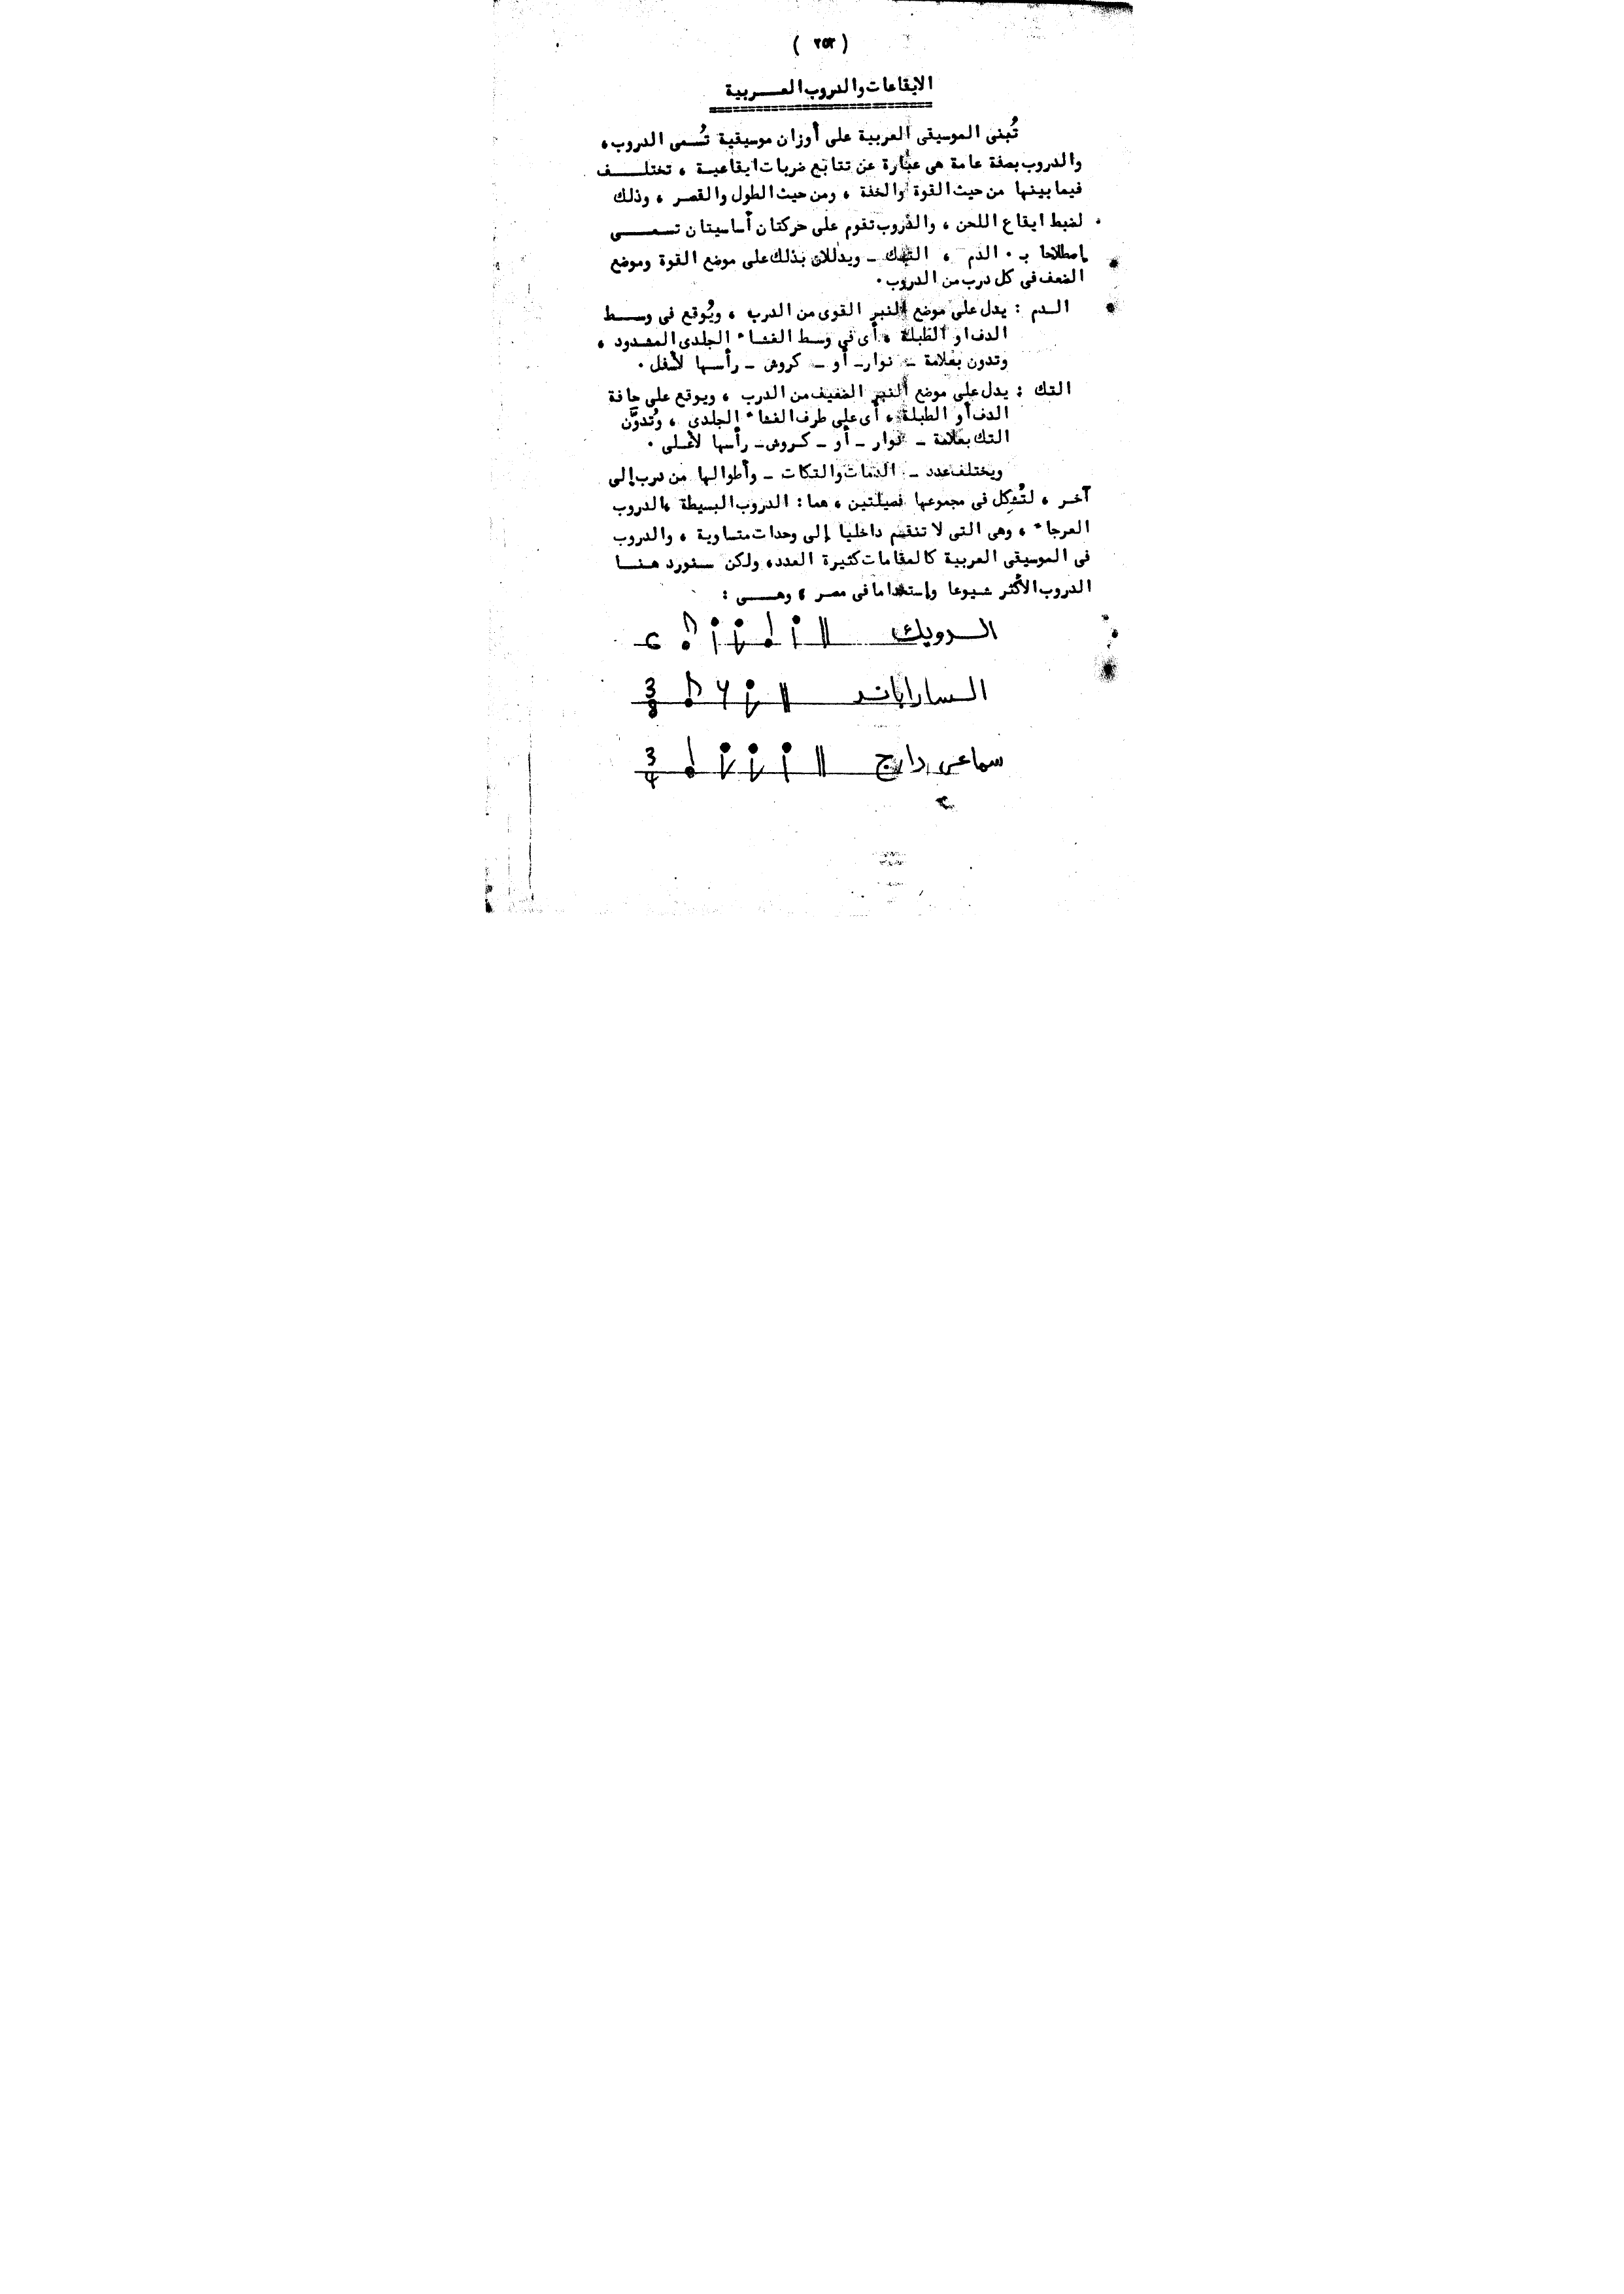 ( ٢٥٢ )
الايقاعات والدروب العربية
تُبنى الموسيقى العربية على أوزان موسيقية تُسمى الدروب ،
والدروب بصفة عامة هى عبارة عن تتابع ضربات ايقاعية ، تختلف
فيما بينها من حيث القوة والخفة ، ومن حيث الطول والقصر ، وذلك
لضبط ايقاع اللحن ، والدروب تقوم على حركتان أساسيتان تسمى
إصطلاحا بـ . الدم ، التك ـ ويدللان بذلك على موضع القوة وموضع
الضعف فى كل درب من الدروب .
الدم : يدل على موضع النبر القوى من الدرب ، ويُوقع فى وسط
الدف او الطبلة ، أى فى وسط الغشاء الجلدى المشدود ،
وتدون بعلامة ـ نوار ـ أو ـ كروش ـ رأسها لأسفل .
التك : يدل على موضع النبر الضعيف من الدرب ، ويوقع على حافة
الدف أو الطبلة ، أى على طرف الغشاء الجلدى ، وتُدوَّن
التك بعلامة ـ نوار ـ أو ـ كروش ـ رأسها لأعلى .
ويختلف عدد ـ الدمات والتكات ـ وأطوالها من درب إلى
آخر ، لتُشكِل فى مجموعها فصيلتين ، هما : الدروب البسيطة ، الدروب
العرجاء ، وهى التى لا تنقسم داخليا إلى وحدات متساوية ، والدروب
فى الموسيقى العربية كالمقامات كثيرة العدد، ولكن سنورد هنا
الدروب الأكثر شيوعا وإستخداما فى مصر ، وهى :
الدويك
الساراباند 3 8
سماعى دارج 3 4